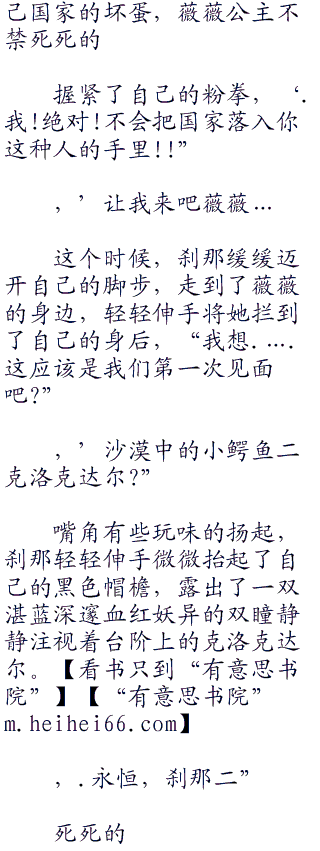 己国家的坏蛋，薇薇公主不
禁死死的
握紧了自己的粉拳，‘.
我!绝对!不会把国家落入你
这种人的手里!!”
，’让我来吧薇薇...
这个时候，刹那缓缓迈
开自己的脚步，走到了薇薇
的身边，轻轻伸手将她拦到
了自己的身后，“我想.....
这应该是我们第一次见面
吧?”
，’沙漠中的小鳄鱼二
克洛克达尔?”
嘴角有些玩味的扬起，
刹那轻轻伸手微微抬起了自
己的黑色帽檐，露出了一双
湛蓝深邃血红妖异的双瞳静
静注视着台阶上的克洛克达
尔。【看书只到“有意思书
院”】【“有意思书院”
m.heihei66.com】
，.永恒，刹那二”
死死的